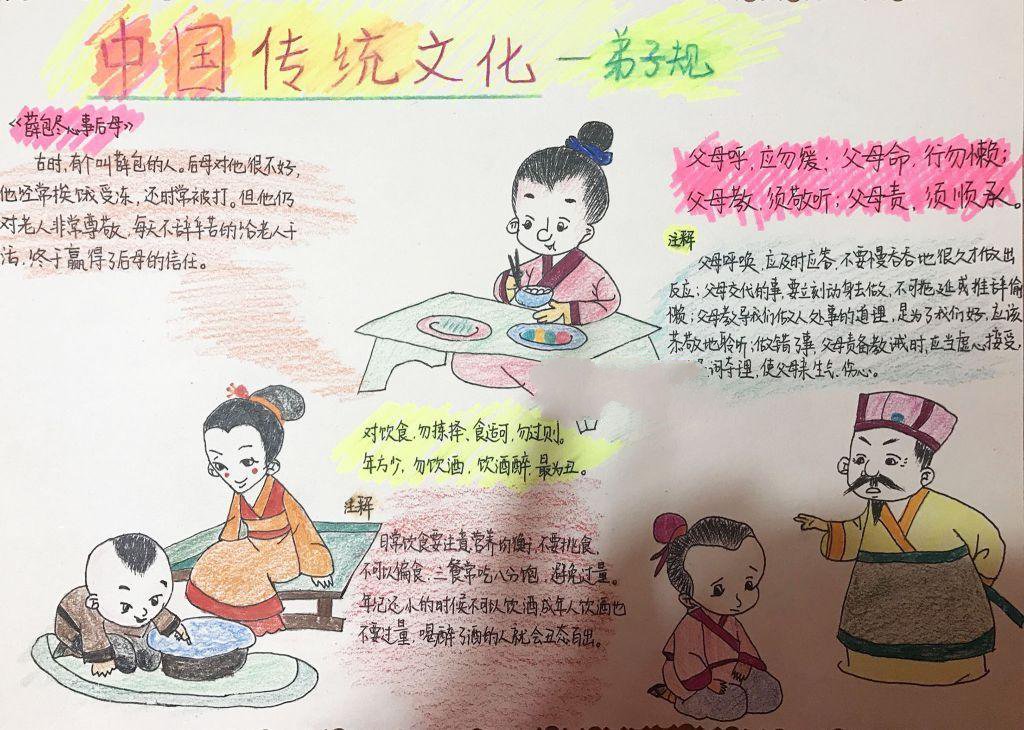 中国传统文化—弟子规
《薛包尽心事后母》
古时,有个叫薛包的人。后母对他很不好,
他经常挨饿受冻,还时常被打。但他仍
对老人非常尊敬,每天不辞辛苦的给老人干
活,终于赢得了后母的信任。
父母呼,应勿缓;父母命,行勿懒;
父母教,须敬听;父母责,须顺承。
注释
父母呼唤,应及时应答,不要慢吞吞地很久才做出
反应;父母交代的事,要立刻动身去做,不可拖延或推辞偷
懒;父母教导我们做人处事的道理,是为了我们好,应该
恭敬地聆听;做错了事,父母责备教诫时,应当虚心接受,
词夺理,使父母亲生气、伤心。
对饮食,勿拣择、食适可,勿过则。
年方少,勿饮酒,饮酒醉,最为丑。
注释
日常饮食要注意营养均衡,不要挑食,
不可以偏食,三餐常吃八分饱,避免过量。
年纪还小的时候不可以饮酒成年人饮酒也
不要过量,喝醉了酒的人就会丑态百出。